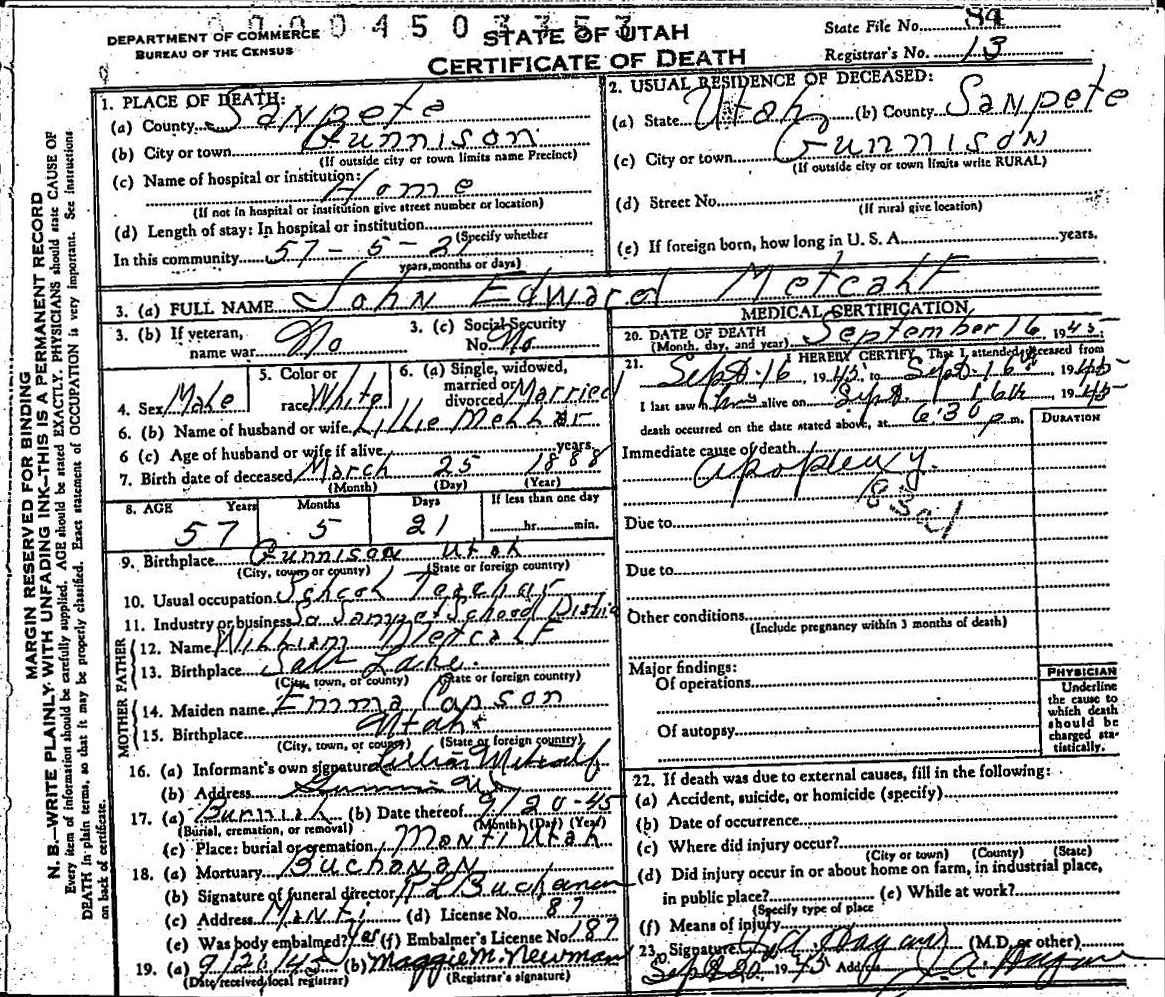 0000450 3353
DEPARTMENT OF COMMERCE
BUREAU OF THE CENSUS
STATE OF UTAH
CERTIFICATE OF DEATH
State File No. 84
Registrar's No. 13
MARGIN RESERVED FOR BINDING
N. B.—WRITE PLAINLY, WITH UNFADING INK—THIS IS A PERMANENT RECORD
Every item of information should be carefully supplied. AGE should be stated EXACTLY. PHYSICIANS should state CAUSE OF
DEATH in plain terms, so that it may be properly classified. Exact statement of OCCUPATION is very important. See instructions
on back of certificate.
1. PLACE OF DEATH:
(a) County Sanpete
(b) City or town Gunnison
(If outside city or town limits name Precinct)
(c) Name of hospital or institution:
Home
(If not in hospital or institution give street number or location)
(d) Length of stay: In hospital or institution
(Specify whether
In this community 57-5-21
years, months or days)
2. USUAL RESIDENCE OF DECEASED:
(a) State Utah (b) County Sanpete
(c) City or town Gunnison
(If outside city or town limits write RURAL)
(d) Street No.
(If rural give location)
(e) If foreign born, how long in U. S. A. years.
3. (a) FULL NAME John Edward Metcalf
3. (b) If veteran,
name war No
3. (c) Social Security
No. No
4. Sex Male
5. Color or
race White
6. (a) Single, widowed,
married or
divorced Married
6. (b) Name of husband or wife Lillie Mellor
6 (c) Age of husband or wife if alive years.
7. Birth date of deceased March 25 1888
(Month) (Day) (Year)
8. AGE Years Months Days If less than one day
57 5 21 hr. min.
9. Birthplace Gunnison Utah
(City, town or county) (State or foreign country)
10. Usual occupation School Teacher
11. Industry or business So Sanpete School District
FATHER
12. Name William Metcalf
13. Birthplace Salt Lake.
(City, town, or county) (State or foreign country)
MOTHER
14. Maiden name Emma Capson
15. Birthplace Utah
(City, town, or county) (State or foreign country)
16. (a) Informant's own signature Lillian Metcalf
(b) Address Gunnison Ut
17. (a) Burrial (b) Date thereof 9/20-45
(Burial, cremation, or removal) (Month) (Day) (Year)
(c) Place: burial or cremation Manti Utah
18. (a) Mortuary Buchanan
(b) Signature of funeral director Buchanan
(c) Address Manti (d) License No. 87
(e) Was body embalmed? Yes (f) Embalmer's License No. 187
19. (a) 9/20/45 (b) Maggie M. Newman
(Date received local registrar) (Registrar's signature)
MEDICAL CERTIFICATION
20. DATE OF DEATH September 16 1945
(Month, day, and year)
21. I HEREBY CERTIFY, That I attended deceased from
Sept. 16, 1945, to Sept. 16, 1945
I last saw him alive on Sept. 16th 1945
death occurred on the date stated above, at 6:30 p m.
DURATION
Immediate cause of death
apoplexy.
83a1
Due to
Due to
Other conditions
(Include pregnancy within 3 months of death)
Major findings:
Of operations
Of autopsy
PHYSICIAN
Underline
the cause to
which death
should be
charged sta-
tistically.
22. If death was due to external causes, fill in the following:
(a) Accident, suicide, or homicide (specify)
(b) Date of occurrence
(c) Where did injury occur?
(City or town) (County) (State)
(d) Did injury occur in or about home on farm, in industrial place,
in public place? (e) While at work?
(Specify type of place
(f) Means of injury
23. Signature (M.D. or other)
Sept 20 1945 Address